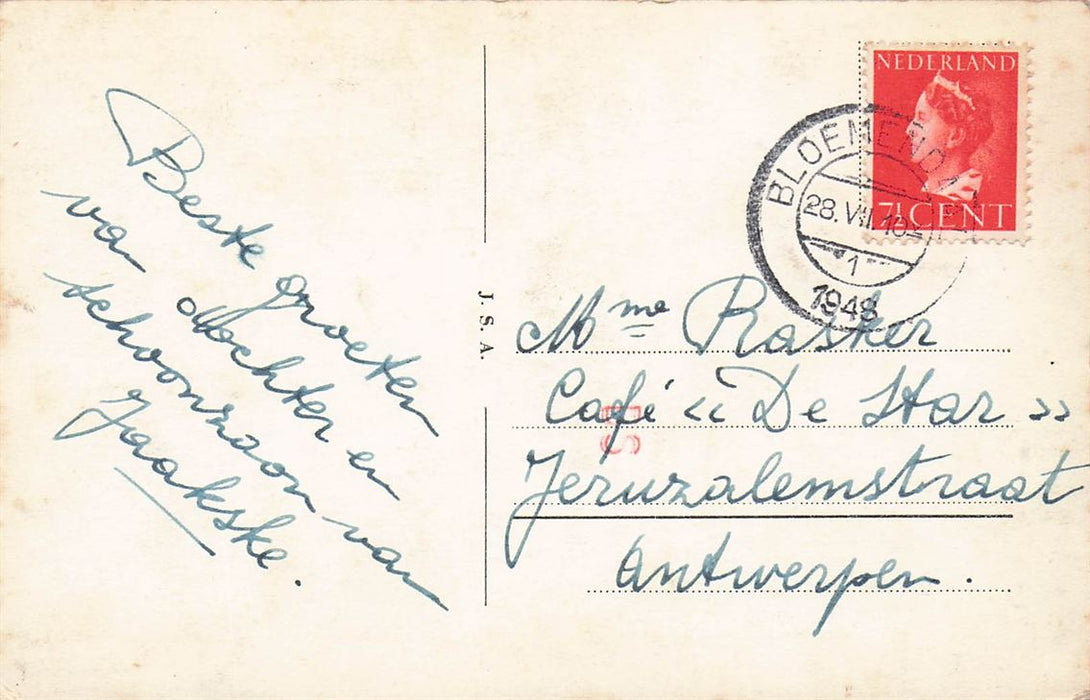 Beste groeten
van dochter en
schoonzoon van
Jaakske.
J. S. A.
NEDERLAND
7½ CENT
BLOEMENDAAL
28.VII.10
1
1948
Mme Rasker
Café « De Star »
Jéruzalemstraat
Antwerpen.